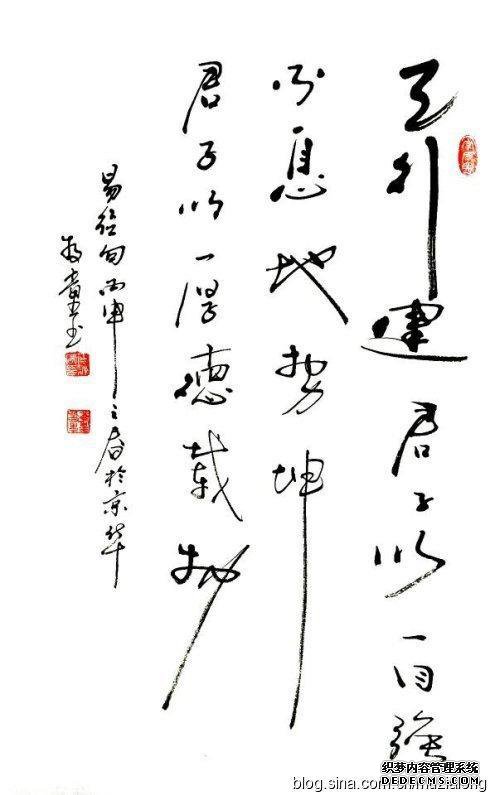 天行建君子以自强
不息地势坤
君子以厚德載物
易经句丙申之春於京华
书
织梦内容管理系统
DEDECMS.COM
blog.sina.com.cn